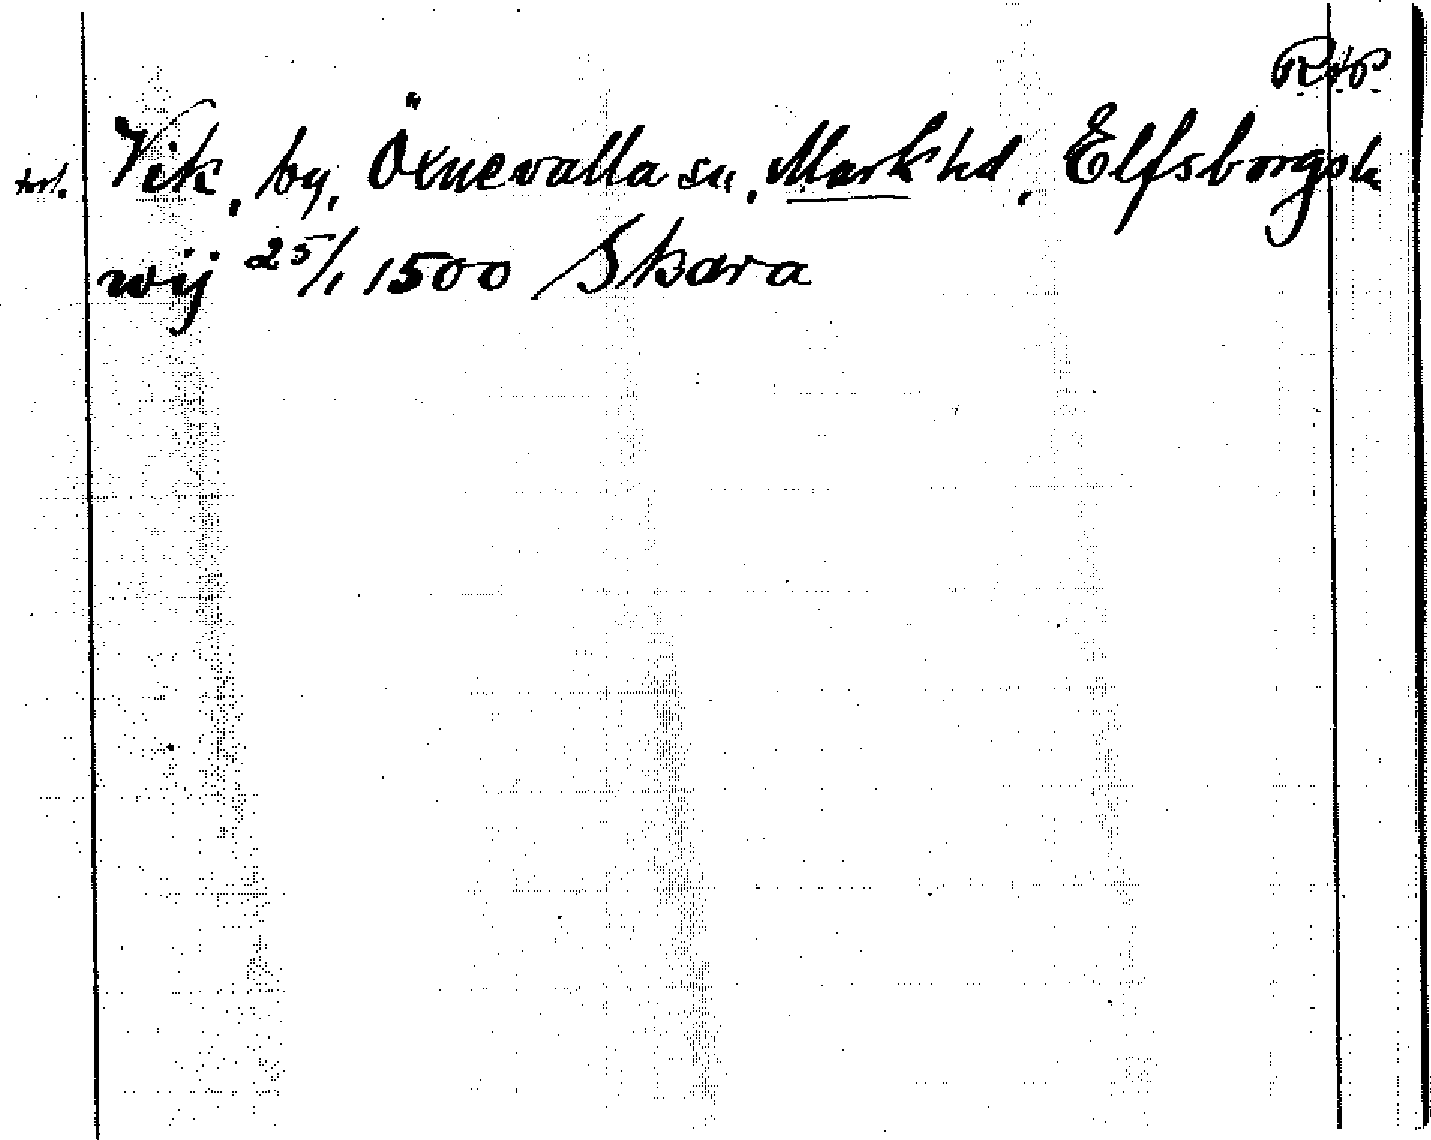 R⁺P
Vik, by, Öxnevalla sn, Mark hd, Elfsborgs l.
wij 25/1 1500 Skara